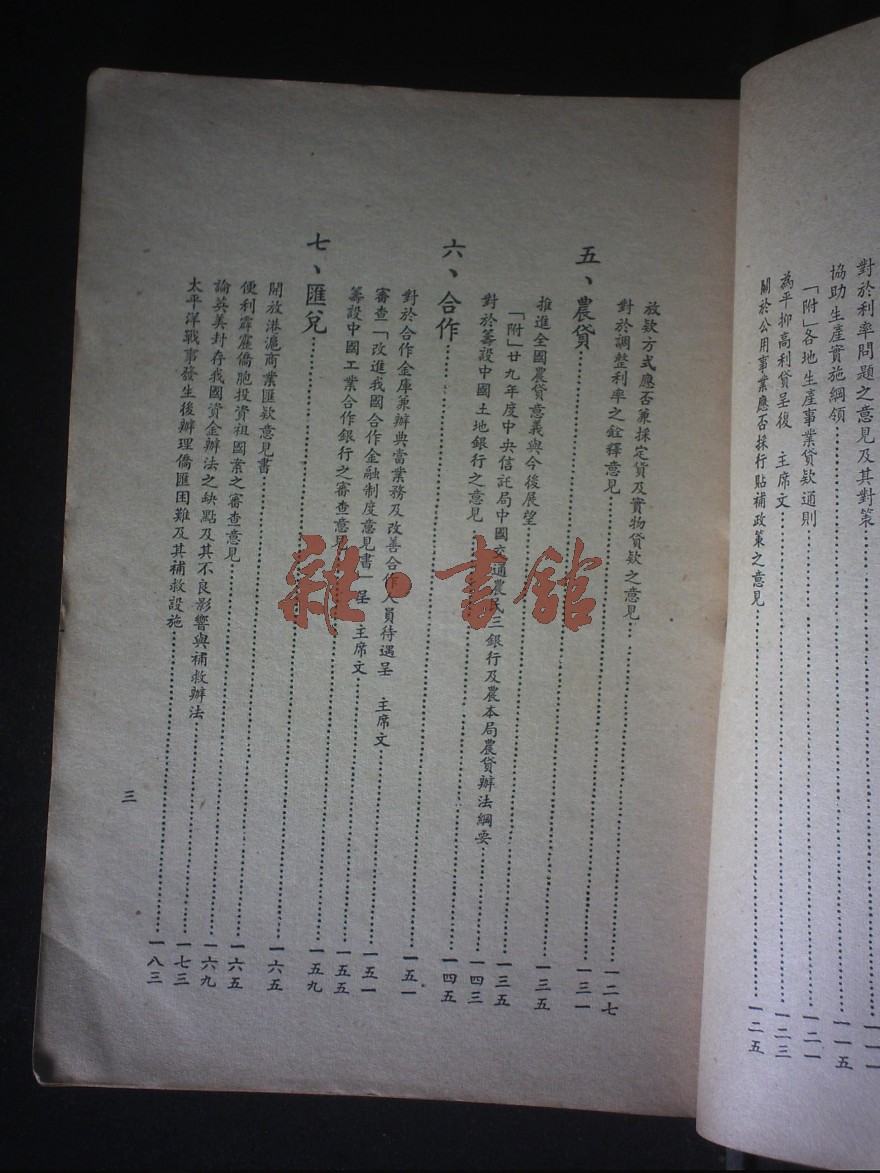 對於利率問題之意見及其對策……一一一
協助生產實施綱領……一一五
「附」各地生產事業貸款通則……一二一
為平抑高利貸呈復　主席文……一二三
關於公用事業應否採行貼補政策之意見……一二五
放款方式應否兼採定貨及實物貸款之意見……一二七
對於調整利率之銓釋意見……一三一
五、農貸……一三五
推進全國農貸意義與今後展望……一三五
「附」廿九年度中央信託局中國交通農民三銀行及農本局農貸辦法綱要……一四三
對於籌設中國土地銀行之意見……一四五
六、合作……一五一
對於合作金庫兼辦典當業務及改善合作人員待遇呈　主席文……一五一
審查「改進我國合作金融制度意見書」呈　主席文……一五五
籌設中國工業合作銀行之審查意見……一五九
七、匯兌……一六五
開放港滬商業匯款意見書……一六五
便利霹靂僑胞投資祖國案之審查意見……一六九
論英美封存我國資金辦法之缺點及其不良影響與補救辦法……一七三
太平洋戰事發生後辦理僑匯困難及其補救設施……一八三
三
雜·書館